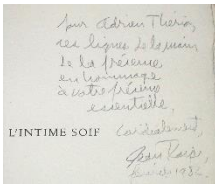 Pour Adrien Thério,
ces lignes de la main
de la présence
en hommage
à votre présence
essentielle,
L'INTIME SOIF
Cordialement,
février 1982